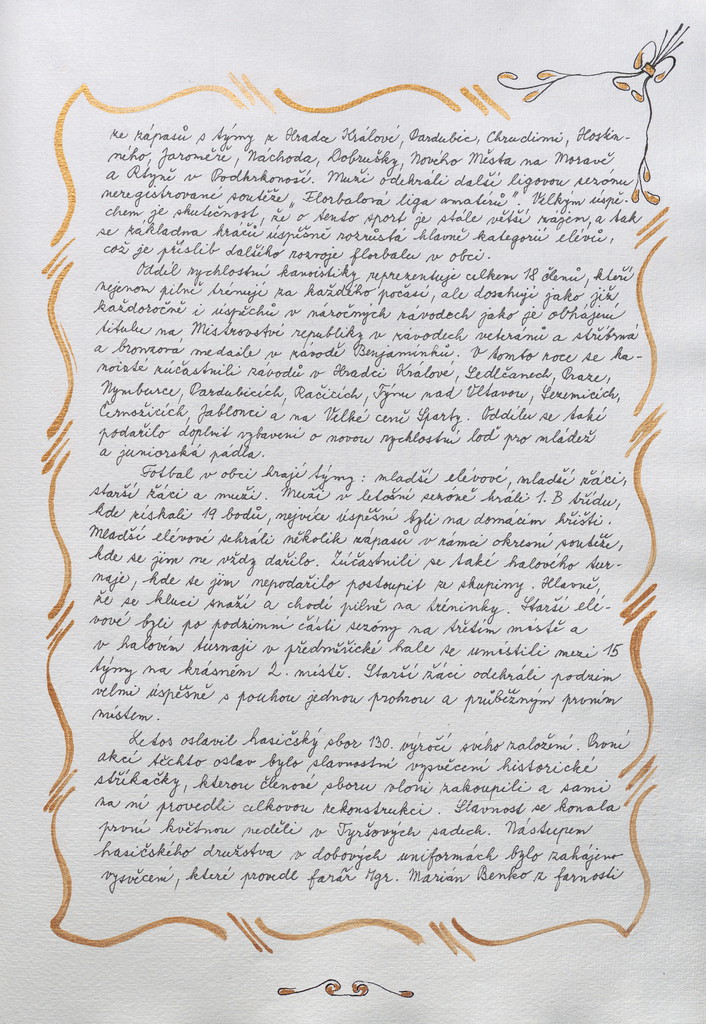 ze zápasů s týmy z Hradce Králové, Pardubic, Chrudimi, Hostin-
ného, Jaroměře, Náchoda, Dobrušky, Nového Města na Moravě
a Rtyně v Podkrkonoší. Muži odehráli další ligovou sezónu
neregistrované soutěže „Florbalová liga amatérů". Velkým úspě-
chem je skutečnost, že o tento sport je stále větší zájem, a tak
se základna hráčů úspěšně rozrůstá hlavně kategorií elévů,
což je příslib dalšího rozvoje florbalu v obci.
Oddíl rychlostní kanoistiky reprezentuje celkem 18 členů, kteří
nejenom pilně trénují za každého počasí, ale dosahují jako již
každoročně i úspěchů v náročných závodech jako je obhájení
titulu na Mistrovství republiky v závodech veteránů a stříbrná
a bronzová medaile v závodě Benjamínků. V tomto roce se ka-
noisté zúčastnili závodů v Hradci Králové, Sedlčanech, Praze,
Nymburce, Pardubicích, Račicích, Týnu nad Vltavou, Sezemicích,
Černožicích, Jablonci a na Velké ceně Sparty. Oddílu se také
podařilo doplnit vybavení o novou rychlostní loď pro mládež
a juniorská pádla.
Fotbal v obci hrají týmy: mladší elévové, mladší žáci,
starší žáci a muži. Muži v letošní sezoně hráli 1. B třídu,
kde získali 19 bodů, nejvíce úspěšní byli na domácím hřišti.
Mladší elévové sehráli několik zápasů v rámci okresní soutěže,
kde se jim ne vždy dařilo. Zúčastnili se také halového tur-
naje, kde se jim nepodařilo postoupit ze skupiny. Hlavně,
že se kluci snaží a chodí pilně na tréninky. Starší elé-
vové byli po podzimní části sezóny na třetím místě a
v halovém turnaji v předměřické hale se umístili mezi 15
týmy na krásném 2. místě. Starší žáci odehráli podzim
velmi úspěšně s pouhou jednou prohrou a průběžným prvním
místem.
Letos oslavil hasičský sbor 130. výročí svého založení. První
akcí těchto oslav bylo slavnostní vysvěcení historické
stříkačky, kterou členové sboru vloni zakoupili a sami
na ní provedli celkovou rekonstrukci. Slavnost se konala
první květnou neděli v Tyršových sadech. Nástupem
hasičského družstva v dobových uniformách bylo zahájeno
vysvěcení, které provedl farář Mgr. Marián Benko z farnosti